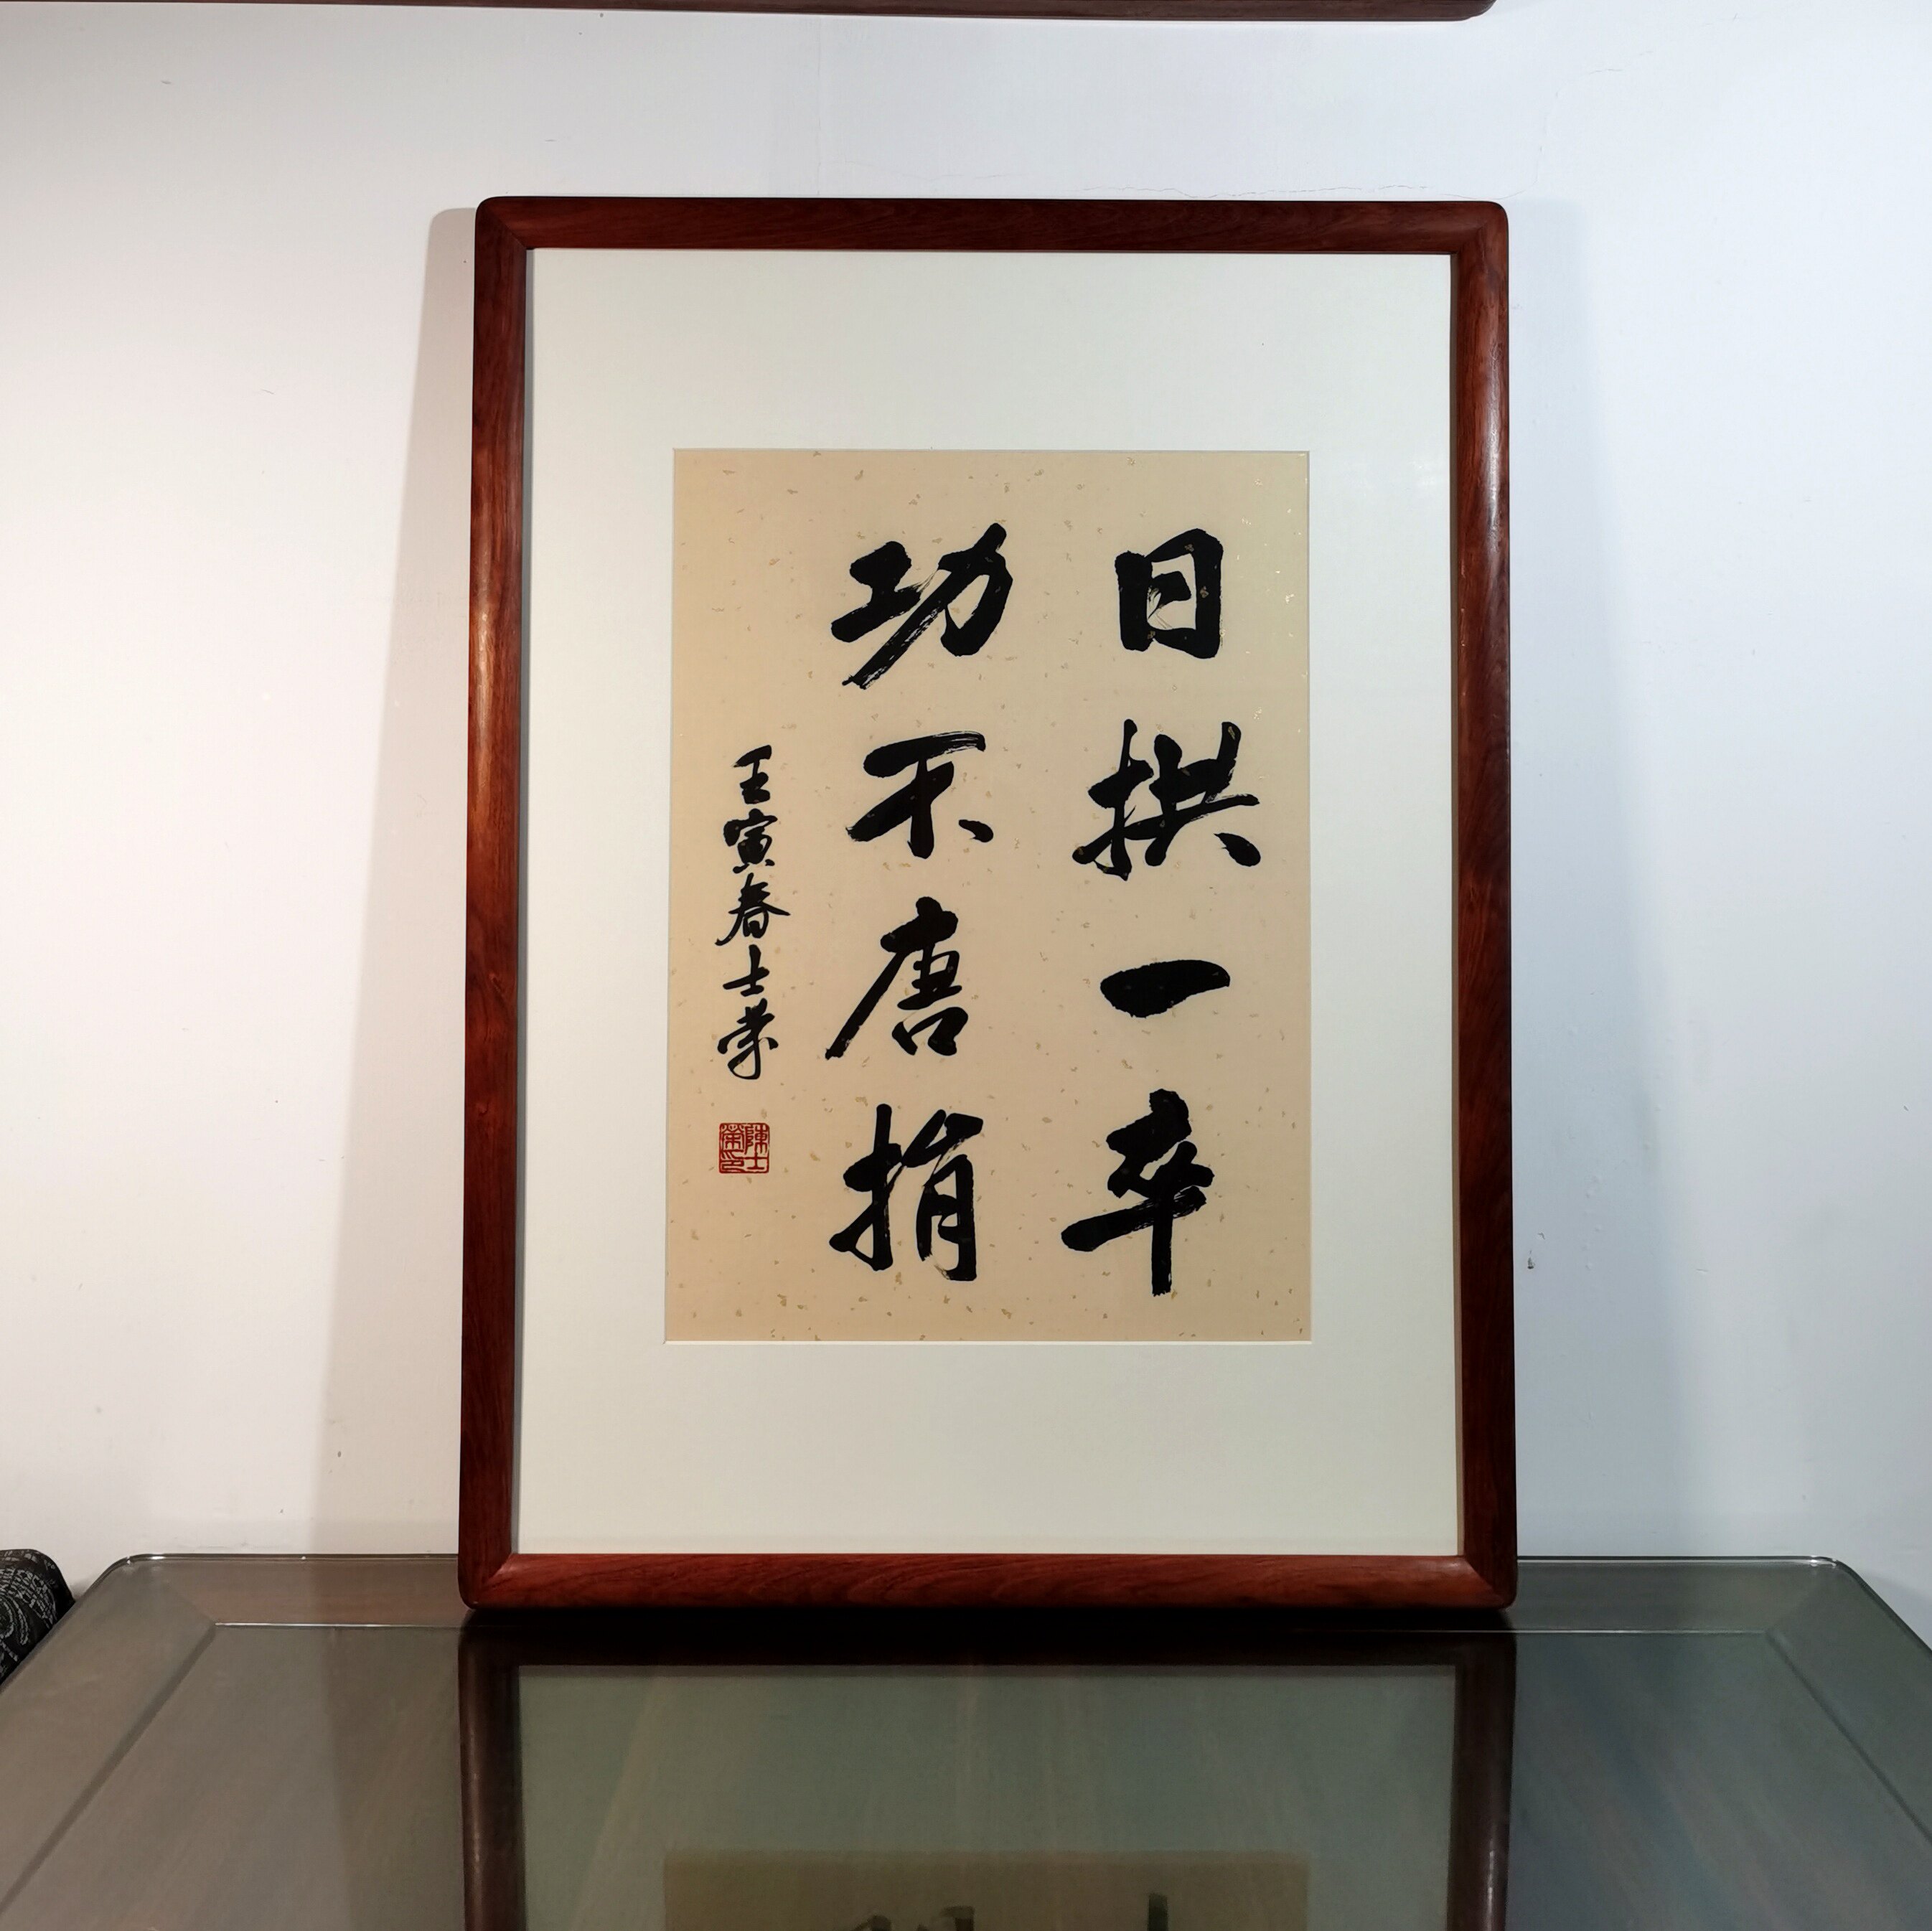 日拱一卒
功不唐捐
壬寅春士荣
陳士榮印